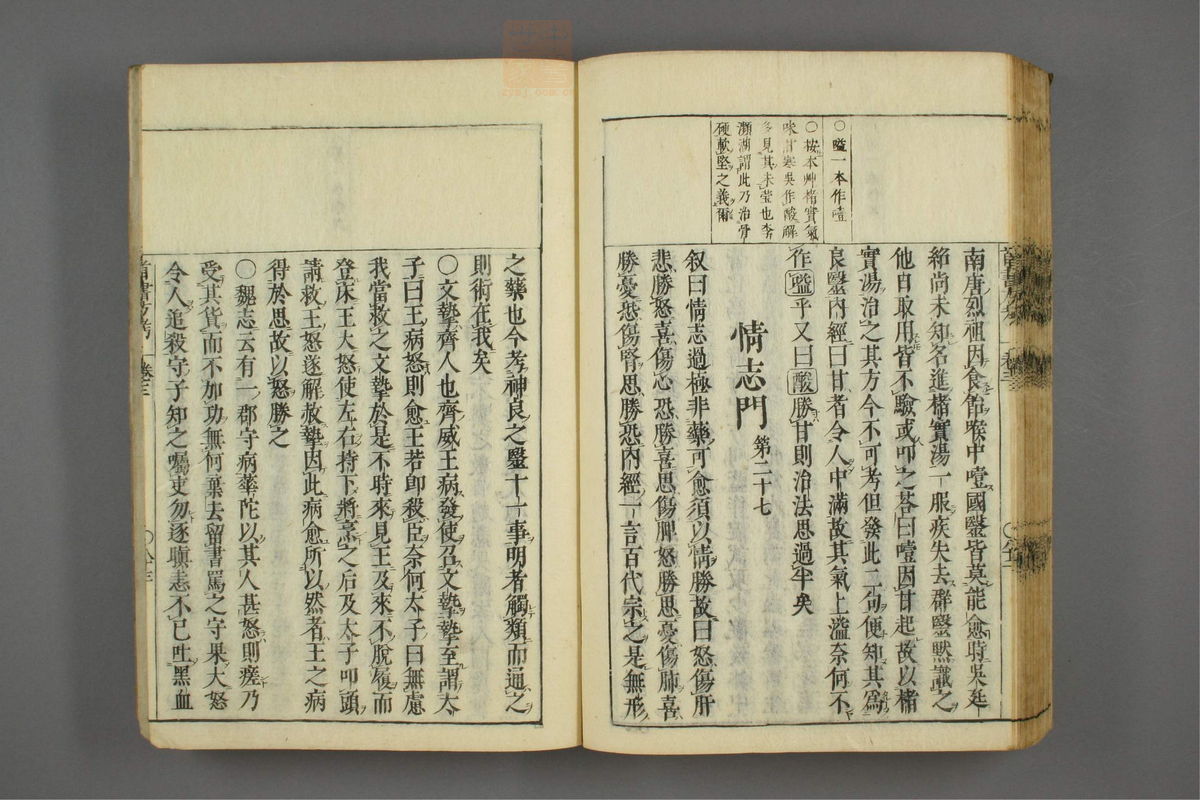 ○嗌一本作噎
○按本艸楮實氣
味甘寒吳作酸解
多見其未瑩也李
瀕湖謂此乃治骨
硬軟堅之義爾
南唐烈祖因食飴喉中噎國醫皆莫能愈時吳廷
紹尚未知名進楮實湯一服疾失去群醫默識之
他日取用皆不驗或叩之荅曰噎因甘起故以楮
實湯治之其方今不可考但發此二句便知其爲
良醫內經曰甘者令人中滿故其氣上溢奈何不
作嗌乎又曰酸勝甘則治法思過半矣
情志門第二十七
叙曰情志過極非藥可愈須以情勝故曰怒傷肝
悲勝怒喜傷心恐勝喜思傷脾怒勝思憂傷肺喜
勝憂恐傷腎思勝恐內經一言百代宗之是無形
之藥也今考神良之醫十一事明者觸類而通之
則術在我矣
○文摯齊人也齊威王病發使召文摯摯至謂太
子曰王病怒則愈王若卽殺臣奈何太子曰無慮
我當救之文摯於是不時來見王及來不脫履而
登床王大怒使左右持下將烹之后及太子叩頭
請救王怒遂解赦摯因此病愈所以然者王之病
得於思故以怒勝之
○魏志云有一郡守病華陀以其人甚怒則瘥乃
受其貨而不加功無何棄去留書罵之守果大怒
令人追殺守子知之囑吏勿逐瞋恚不已吐黑血